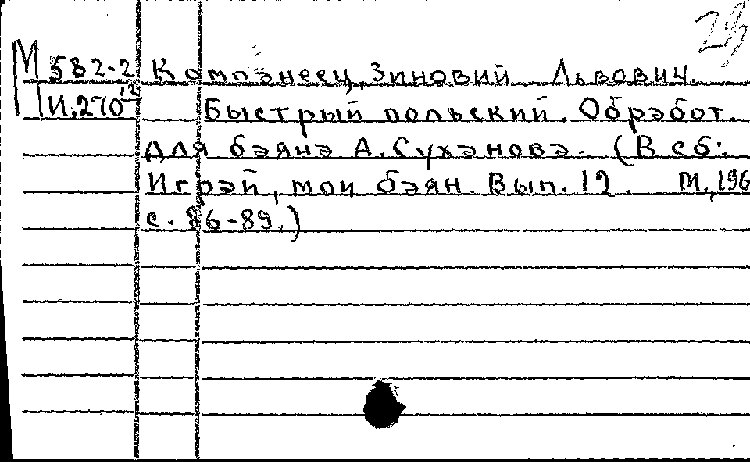 29
М 582-2 Компанеец, Зиновий Львович.
И.270 12 Быстрый польский. Обработ.
для баяна А. Суханова. (В сб:
Играй, мой баян. Вып. 12. М., 196
с. 86-89.)